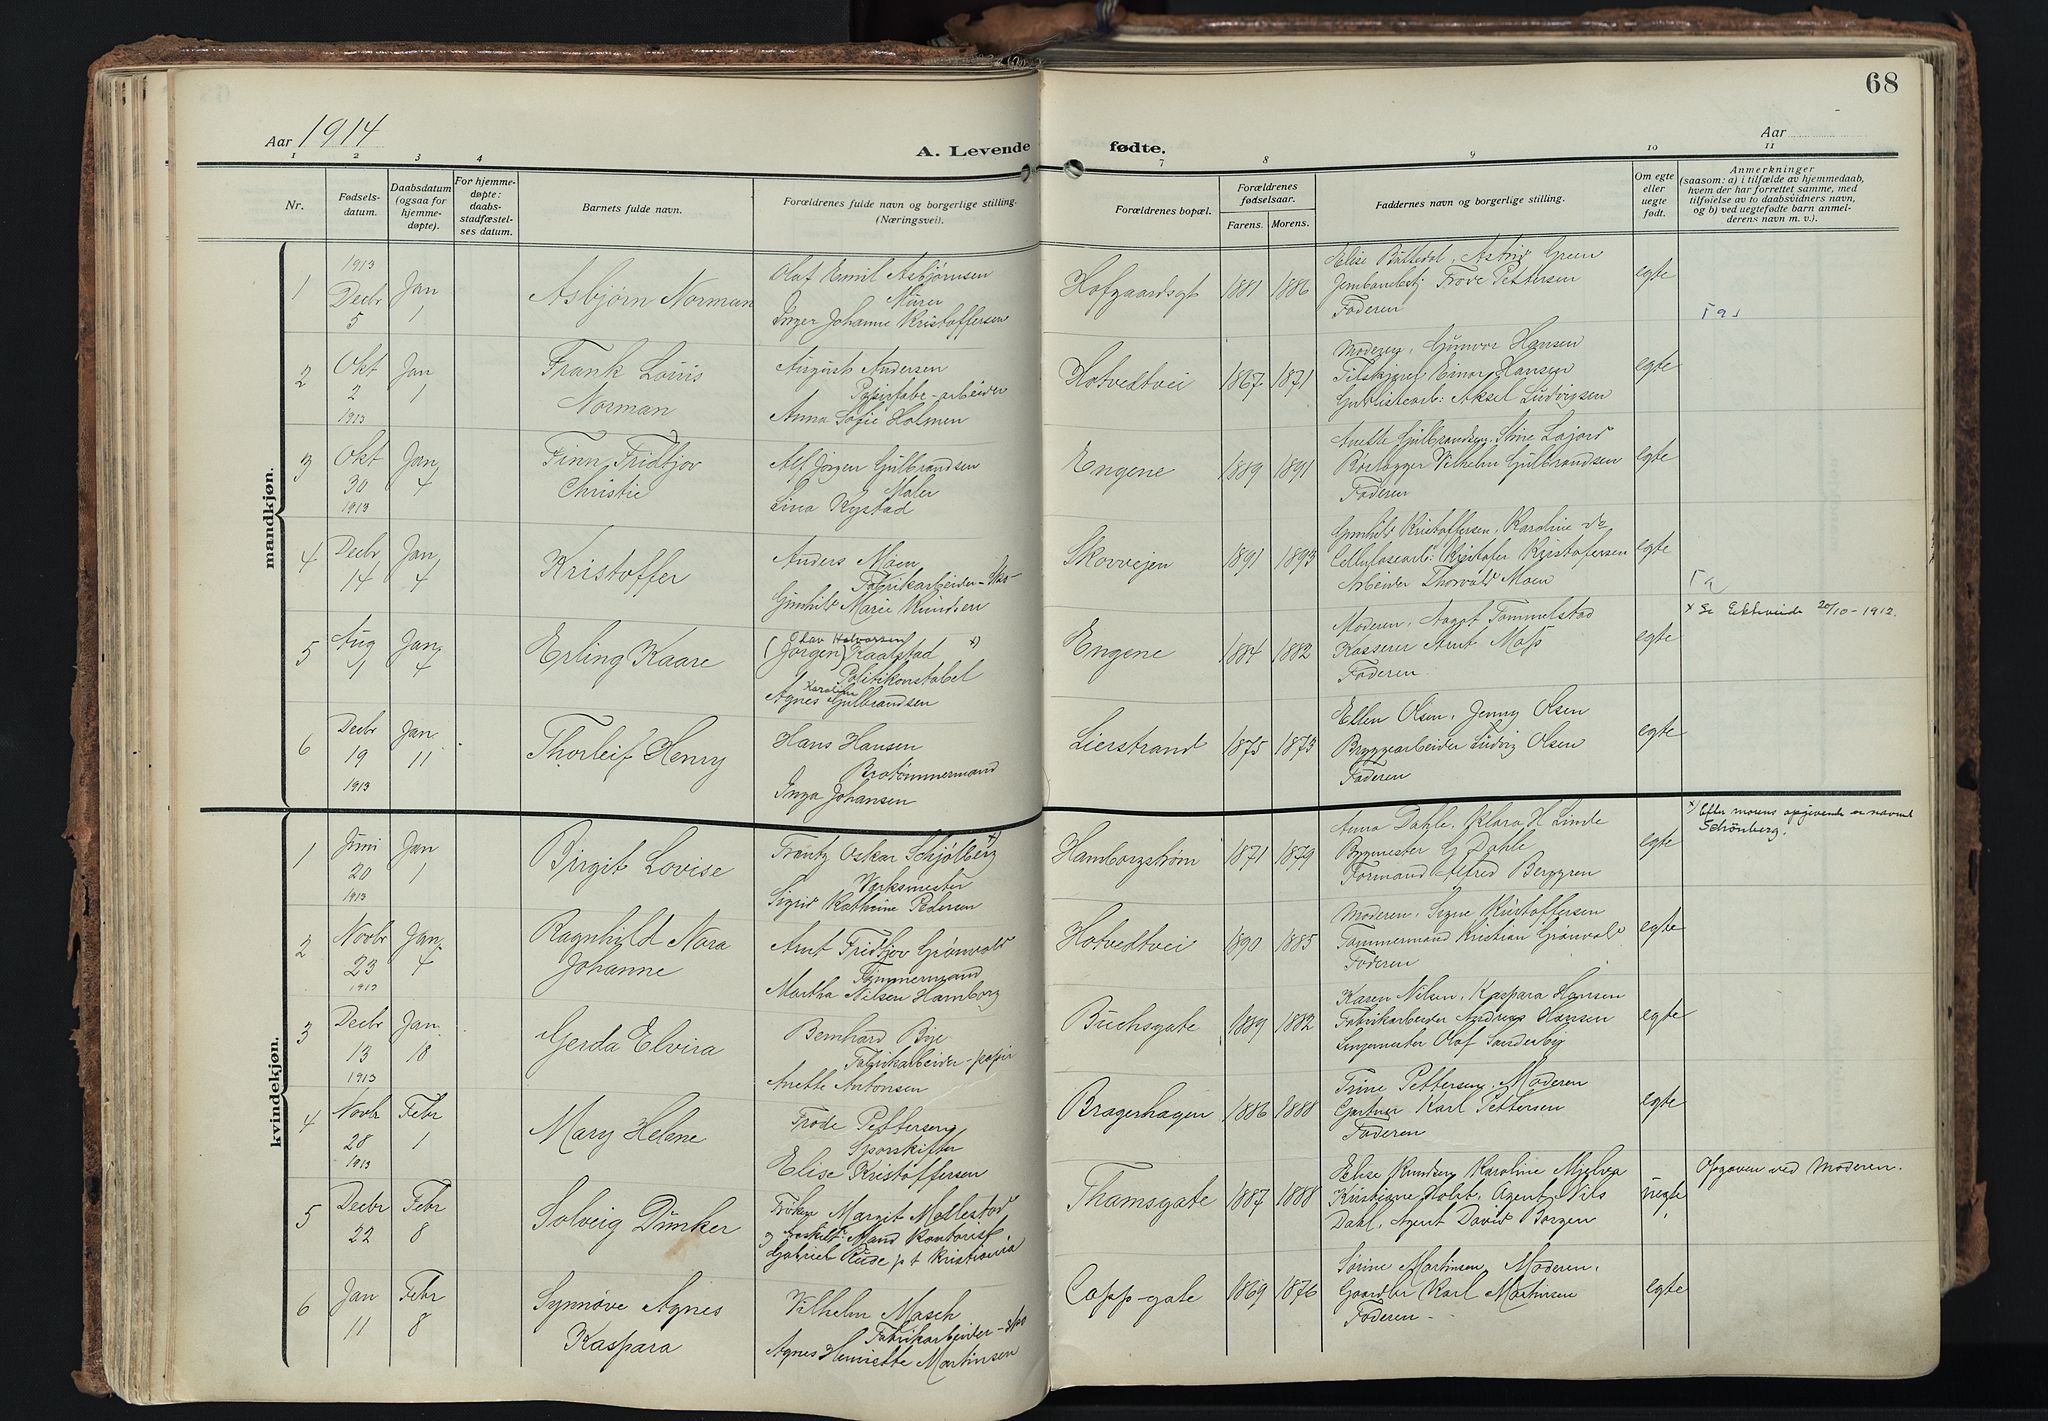 68
Aar 1914
Aar
A. Levende fødte.
1 2 3 4 7 8 9 10 11
Nr.
Fødsels-
datum.
Daabsdatum
(ogsaa for
hjemme-
døpte).
For hjemme-
døpte:
daabs-
stadfæstel-
ses datum.
Barnets fulde navn.
Forældrenes fulde navn og borgerlige stilling.
(Næringsvei).
Forældrenes bopæl.
Forældrenes
fødselsaar.
Farens. Morens.
Faddernes navn og borgerlige stilling.
Om egte
eller
uegte
født.
Anmerkninger
(saasom: a) i tilfælde av hjemmedaab,
hvem der har forrettet samme, med
tilføielse av to daabsvidners navn,
og b) ved uegtefødte barn anmel-
derens navn m. v.).
mandkjøn.
1
1913
Decbr
5
Jan
1
Asbjørn Norman
Olaf Emil Asbjørnsen
Murer
Inger Johanne Kristoffersen
Hofgaardsgt 1881 1886
Elise Battedal, Astrid Green
Jernbanebetj Frode Pettersen
Faderen
egte
2
Okt
2
1913
Jan
1
Frank Louis
Norman
August Andersen
Papirfabr-arbeider
Anna Sofie Holmen
Hotvedtvei 1867 1871
Moderen, Gunvor Hansen
Tilskjærer Einar Hansen
Aksel Ludvigsen
egte
3
Okt
30
1913
Jan
4
Finn Fridtjov
Christie
Alf Jørgen Gulbrandsen
Maler
Lina Rystad
Engene 1889 1891
Anette Gulbrandsen, Stine
Vilhelm Gulbrandsen
Faderen
egte
4
Decbr
14
Jan
4
Kristoffer
Anders Moen
Fabrikarbeider - Spo-
Gunhild Marie Knudsen
Skovveien 1891 1893
Gunhild Kristoffersen, Karoline do
Cellulosearb: Kristofer Kristofersen
Arbeider Thorvald Moen
egte
5
Aug
1
Jan
4
Erling Kaare
Olav Halvorsen
(Jørgen) Kaalstad x)
Politikonstabel
Karoline
Agnes Gulbrandsen
Engene 1884 1882
Moderen, Aagot Tommelstad
Kasserer Arnt Moss
Faderen
egte
x Se Ekteveide 20/10 - 1912.
6
Decbr
19
1913
Jan
11
Thorleif Henry
Hans Hansen
Brotømmermand
Inga Johansen
Lierstrand 1875 1873
Ellen Olsen, Jenny Olsen
Bryggearbeider Ludvig Olsen
Faderen
egte
kvindekjøn.
1
Juni
20
1913
Jan
1
Birgit Lovise
Frantz Oskar Schjølberg x)
Værksmester
Sigrid Kathrine Pedersen
Hamborgstrøm 1871 1879
Anna Dahle, Klara H Linde
Bygmester G Dahle
Formand Alfred Berggren
egte
x) Efter morens opgivende er navnet
Schönberg.
2
Novbr
23
1913
Jan
4
Ragnhild Nora
Johanne
Arnt Fridtjov Grønvold
Tømmermand
Martha Nilsen Hamborg
Hotvedtvei 1890 1885
Moderen, Signe Kristoffersen
Tømmermand Kristian Grønvold
Faderen
egte
3
Decbr
13
1913
Jan
18
Gerda Elvira
Bernhard Bye
Fabrikarbeider - papir
Anette Antonsen
Buchsgate 1889 1882
Karen Nilsen, Kaspara Hansen
Fabrikarbeider Andreas Hansen
Olaf Sanderbig
egte
4
Novbr
28
1913
Febr
1
Mary Helene
Frode Pettersen
Sporskifter
Elise Kristoffersen
Bragerhagen 1886 1888
Trine Pettersen, Moderen
Gartner Karl Pettersen
Faderen
egte
5
Decbr
22
Febr
8
Solveig Dunker
Frøken Margit Mellestad
og fraskilt Mand Kontorist
Gabriel Rude p t Kristiania
Thamsgate 1887 1888
Elise Knudsen Karoline Mjelva
Kristiane Holst, Agent Nils
Dahl, Agent David Borgen
uegte
Opgaven ved Moderen.
6
Jan
11
Febr
8
Synnøve Agnes
Kaspara
Vilhelm Masch
Fabrikarbeider - spo
Agnes Henriette Martinsen
Capp-gate 1869 1876
Sørine Martinsen, Moderen,
Gaardbr Karl Martinsen
Faderen
egte